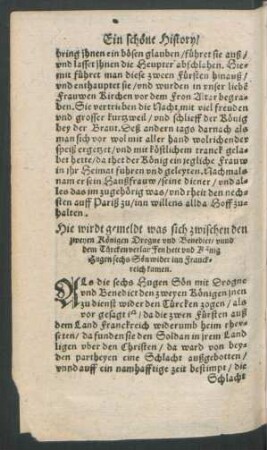 Ein schöne History/
bring jhnen ein bösen glauben/ führet sie auß/
vnd lasset jhnen die Heupter abschlahen. Hie-
mit führet man diese zween Fürsten hinauß/
vnd enthauptet sie/ vnd wurden in vnser liebē
Frauwen Kirchen vor dem Fron Altar begra-
ben. Sie vertriben die Nacht mit viel freuden
vnd grosser kurtzweil/ vnd schlieff der König
bey der Braut. Deß andern tags darnach als
man sich vor wol mit aller hand wolriechender
speiß ergetzet/ vnd mit köstlichem tranck gela-
bet hette/ da thet der König ein jegliche Frauw
in jhr Heimat führen vnd geleyten. Nachmals
nam er sein Haußfrauw/ seine diener/ vnd al-
les das im zugehörig was/ vnd rheit den nech-
sten auff Pariß zu/ inn willens allda Hoff zu-
halten.
Hie wirdt gemeldt was sich zwischen den
zweyen Königen Drogue vnd Benedicten vnnd
dem Thürcken verlauffen/ heit vnd König
Hugen sechs Sön wider inn Franck-
reich kamen.
ALs die sechs Hugen Sön mit Drogne
vnd Benedict den zweyen Königen jnen
zu dienst wider den Türcken zogen/ als
vor gesagt ist/ da die zwen Fürsten auß
dem Land Franckreich widerumb heim rhey-
seten/ da funden sie den Soldan in jrem Land
ligen vber den Christen/ da ward von bey-
den partheyen eine Schlacht außgebotten/
vnnd auff ein namhafftige zeit bestimpt/ die
Schlacht